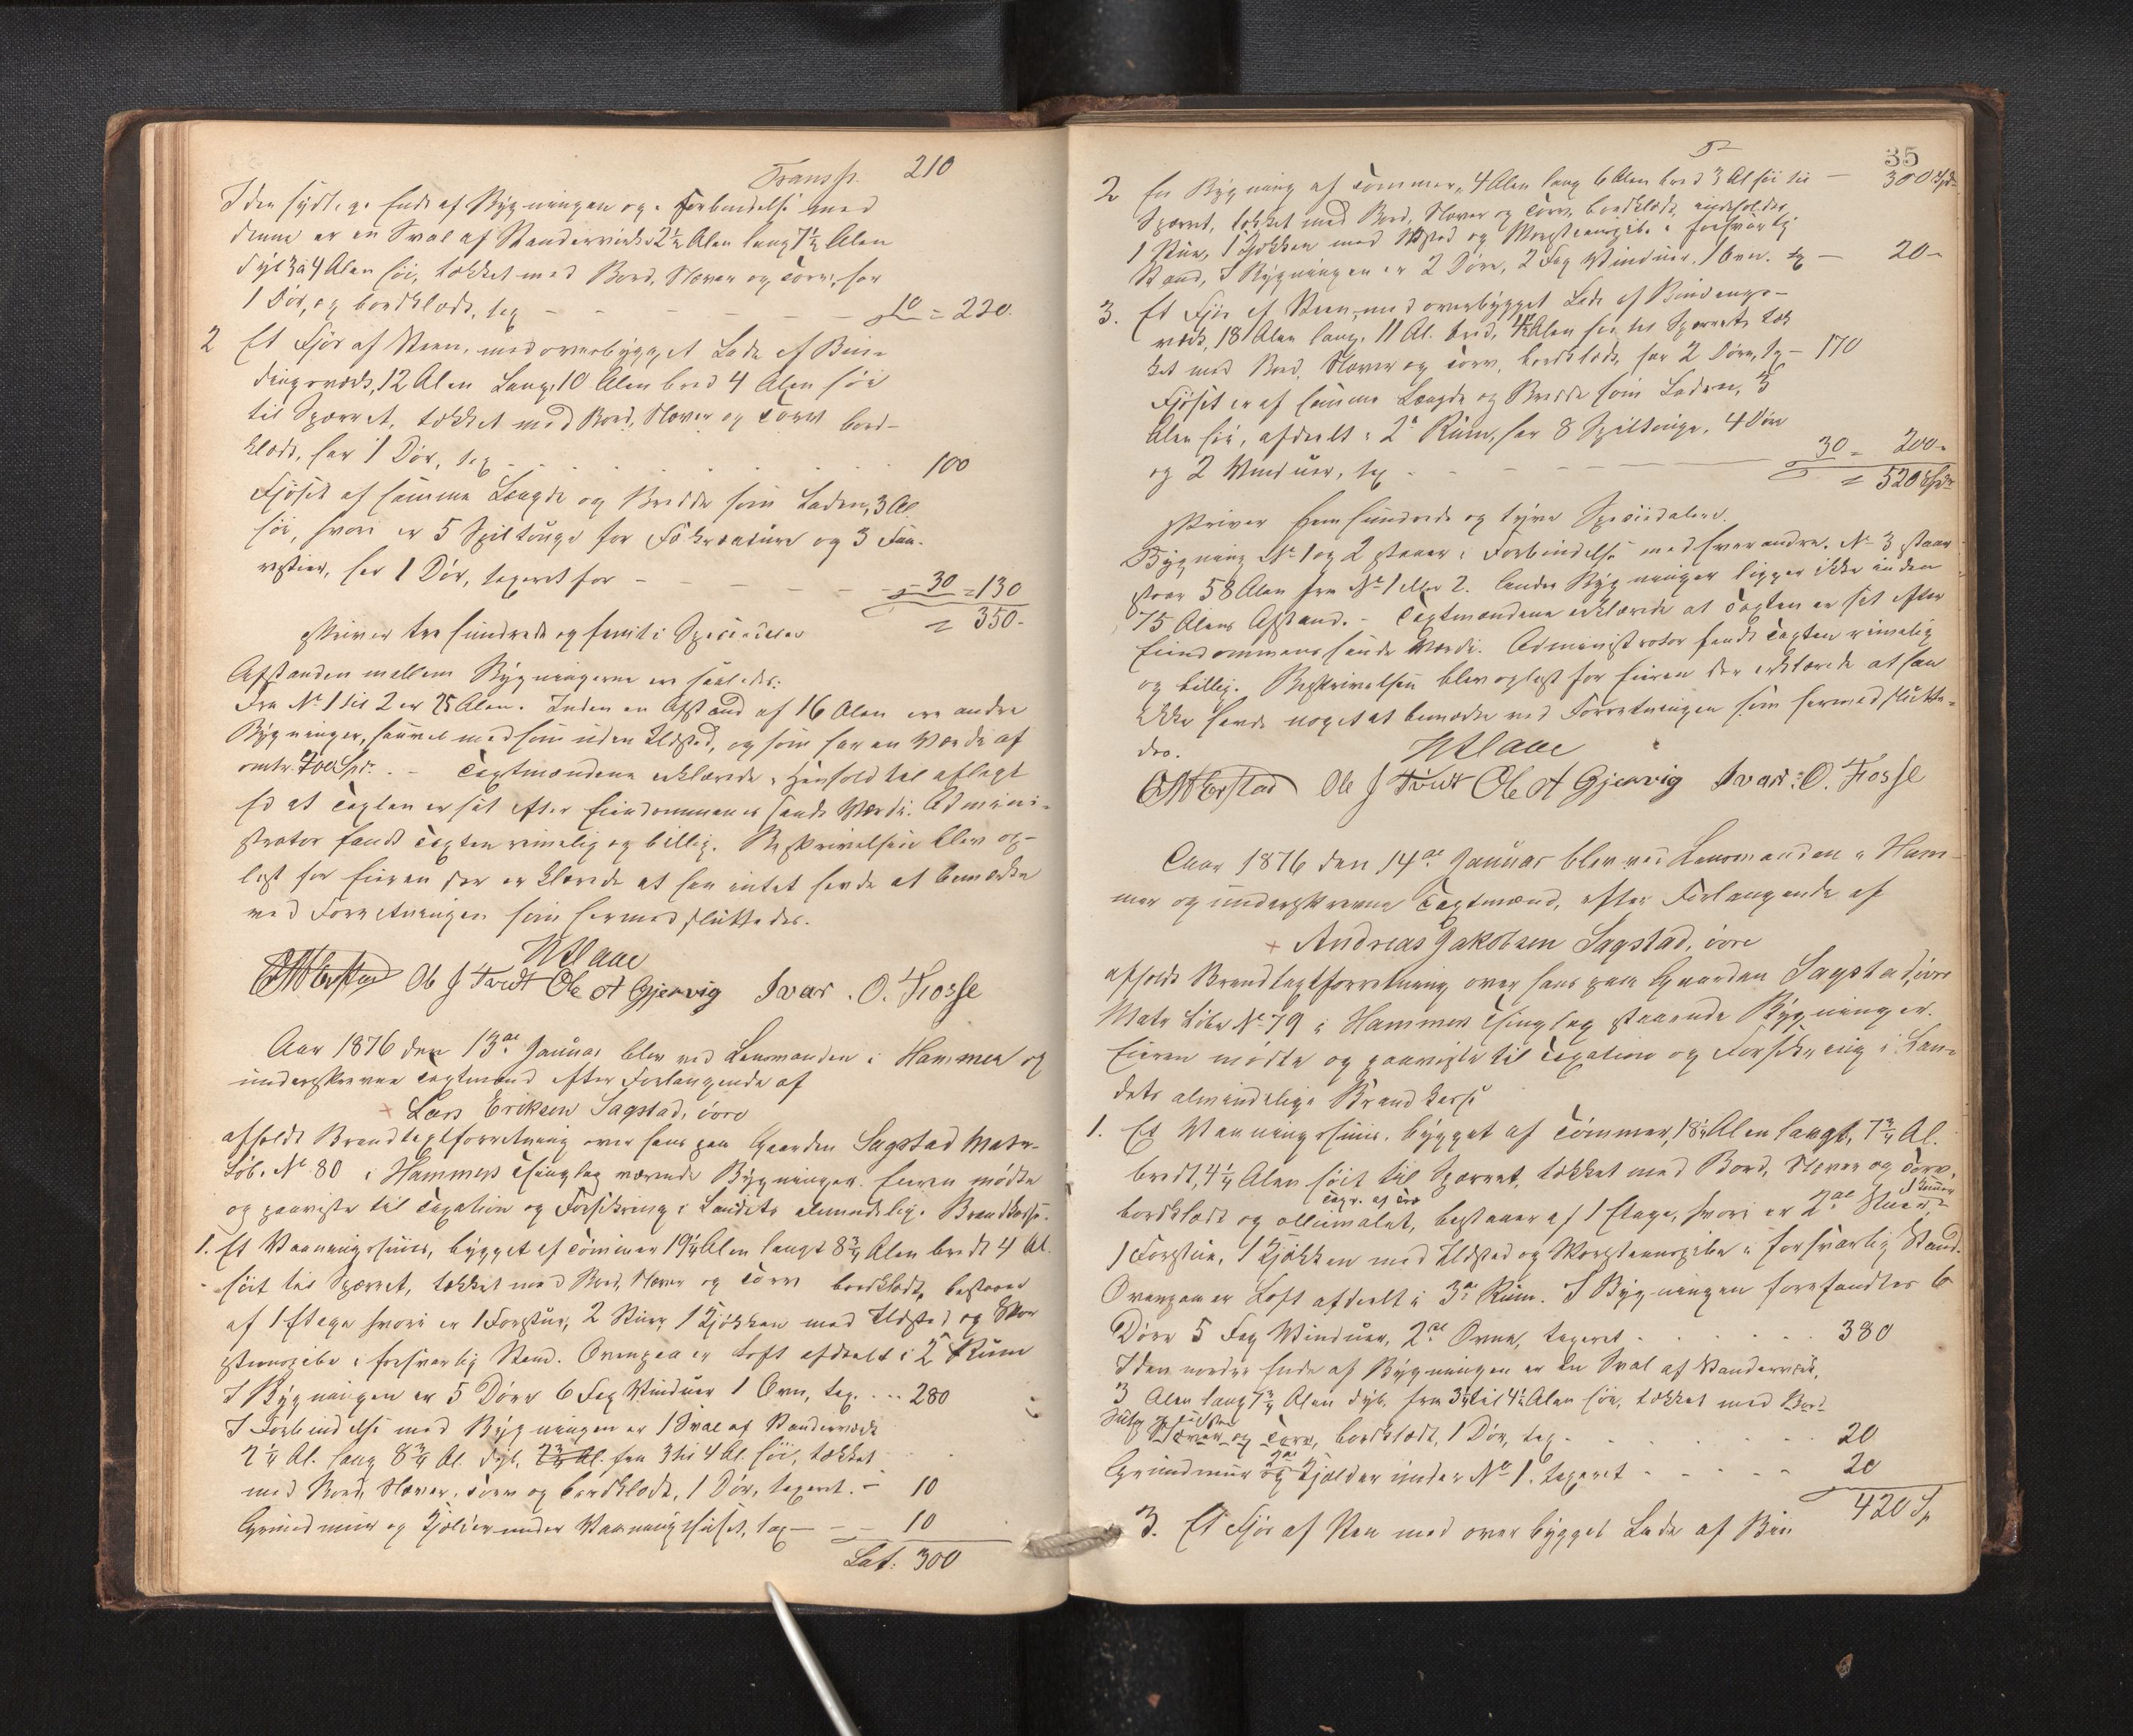 Transp. 210
I den sydlige Ende af Bygningen og i Forbindelse med
denne er en Sval af Standerværk 2½ Alen lang 7½ Alen
dyb 3 à 4 Alen høi, tækket med Bord, Næver og Torv, har
1 Dør, og bordklædt, tax - - - - 10 = 220.
2 Et Fjøs af Steen, med overbygget Lade af Bin-
dingsværk, 12 Alen Lang, 10 Alen bred 4 Alen høi
til Sparret, tækket med Bord, Næver og Torv bord-
klædt, har 1 Dør, tax . . . . 100
Fjøset af samme Længde og Bredde som Laden, 3 Al.
høi, hvori er 5 Spiltouge for Fækreature og 3 Faa-
restier, har 1 Dør, taxeret for - - - - 30 = 130
= 350 -
skriver tre hundrede og femti Speciedaler
Afstanden mellem Bygningerne er saaledes:
Fra No 1 til 2 er 25 Alen. Inden en Afstand af 16 Alen ere andre
Bygninger, saavel med som uden Ildsted, og som har en Værdi af
omtr. Spd. - Taxtmændene erklærede i Henhold til aflagt
Ed at Taxten er sat efter Eiendommenes sande Værdi. Admini-
strator fandt Taxten rimelig og billig. Beskrivelsen blev op-
læst for Eieren der erklærede at han intet havde at bemærke
ved Forretningen som hermed sluttedes.
Ole J Tvedt Ole A Gjervig Ivar . O. Fosse
Aar 1876 den 13de Januar blev ved Lensmanden i Hammer og
underskrevne Taxtmænd efter Forlangende af
+ Lars Eriksen Sagstad, øvre
afholdt Brandtaxtforretning over hans paa Gaarden Sagstad Matr-
Løb. No 80 i Hammers Thinglag værende Bygninger. Eieren mødte
og paaviste til Taxation og Forsikring i Landets almindelige Brandkasse.
1. Et Vaaningshuus, bygget af Tømmer 19¼ Alen langt 8¾ Alen bredt 4 Al.
høit til Sparret, tækket med Bord, Næver og Torv bordklædt, bestaaer
af 1 Etage hvori er 1 Forstue, 2 Stuer, 1 Kjøkken med Ildsted og Skor
stenspibe i forsvarlig Stand. Ovenpaa er Loft afdeelt i 2de Rum
I Bygningen er 5 Døre 6 Fag Vinduer 1 Ovn, tax. . . . 280
I Forbindelse med Bygningen er 1 Sval af Standerværk
2¼ Al. lang 8¾ Al. dyb, fra 3 til 4 Al. høi, tækket
med Bord, Næver, Torv og bordklædt, 1 Dør, taxeret. - 10
Grundmuur og Kjelder under Vaaningshuset, tax - - 10
Lat: 300
35
2 En Bygning af Tømmer, 4 Alen lang 6 Alen bred 3 Al høi til - 300 Spd
Sparret, tækket med Bord, Næver og Torv, bordklædt, indeholder
1 Stue, 1 Kjøkken med Ildsted og Skorsteenspibe i forsvarlig
Stand, I Bygningen er 2 Døre, 2 Fag Vinduer, 1 Ovn. tx - 20 -
3. Et Fjøs af Steen, med overbygget Lade af Bindings-
værk, 18 Alen lang, 11 Al. bred, Alen høi til Sparret, tæk
ket med Bord, Næver og Torv, bordklædt, har 2 Døre, tx - 170
Fjøset er af samme Længde og Bredde som Laden, 3
Alen høi, afdeelt i 2de Rum, har 8 Spiltouge, 4 Døre
og 2 Vinduer, tx - - - - 30 = 200 -
= 520 Spd
skriver fem hundrede og tyve Speciedaler.
Bygning No 1 og 2 staaer i Forbindelse med hverandre. No 3 staar
58 Alen fra No 1 eller 2. Andre Bygninger ligger ikke inden
75 Alens Afstand. - Taxtmændene erklærede at Taxten er sat efter
Eiendommens sande Værdi. Administrator fandt Taxten rimelig
og billig. Beskrivelsen blev oplæst for Eieren der erklærede at han
ikke havde noget at bemærke ved Forretningen som hermed slutte-
des.
Ole J Tvedt Ole A Gjervig Ivar . O. Fosse
Aar 1876 den 14de Januar blev ved Lensmanden i Ham-
mer og underskrevne Taxtmænd, efter Forlangende af
+ Andreas Jakobsen Sagstad, øvre
afholdt Brandtaxtforretning over hans paa Gaarden Sagstad, øvre
Matr Løbe No 79 i Hammers Thinglag staaende Bygninger.
Eieren mødte og paaviste til Taxation og Forsikring i Lan-
dets almindelige Brandkasse
1. Et Vaaningshuus, bygget af Tømmer, 18¼ Alen langt, 7¾ Al.
bredt, 4¼ Alen høit til Sparret, tækket med Bord, Næver og Torv,
bordklædt og oliemalet, bestaaer af 1 Etage, hvori er 2de Stuer,
1 Forstue, 1 Kjøkken med Ildsted og Skorsteenspibe i forsvarlig Stand.
Ovenpaa er Loft afdeelt i 3de Rum. I Bygningen forefandtes 6
Døre 5 Fag Vinduer, 2de Ovne, taxeret - . . . . . 380
I den nordre Ende af Bygningen er en Sval af Standerværk,
3 Alen lang 7¾ Alen dyb, fra 3½ til 4½ Alen høi, tækket med Bord
Næver og Torv, bordklædt, 1 Dør, tax - . . . . 20
Grundmuur og 2de Kjelder under No 1. taxeret - - - - 20
420 Sp
3. Et Fjøs af Sten med overbygget Lade af Bin